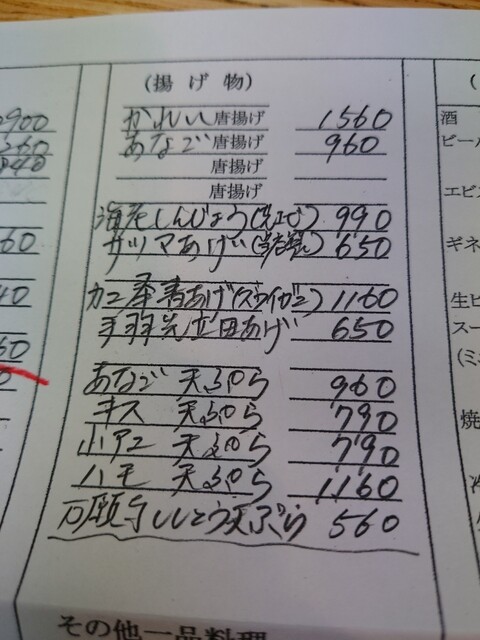 (揚げ物)
かれい唐揚げ 1560
あなご唐揚げ 960
唐揚げ
唐揚げ
海老しんじょう(芝エビ) 990
サツマあげ(自家製) 650
カニ 奉書あげ(ズワイガニ) 1160
手羽先立田あげ 650
あなご 天ぷら 960
キス 天ぷら 790
小アユ 天ぷら 790
ハモ 天ぷら 1,160
万願寺ししとう天ぷら 560
その他一品料理
900
260
940
60
40
60
0
(
酒
ビール
エビス
ギネ
生ビ
スー
(ミニ
焼